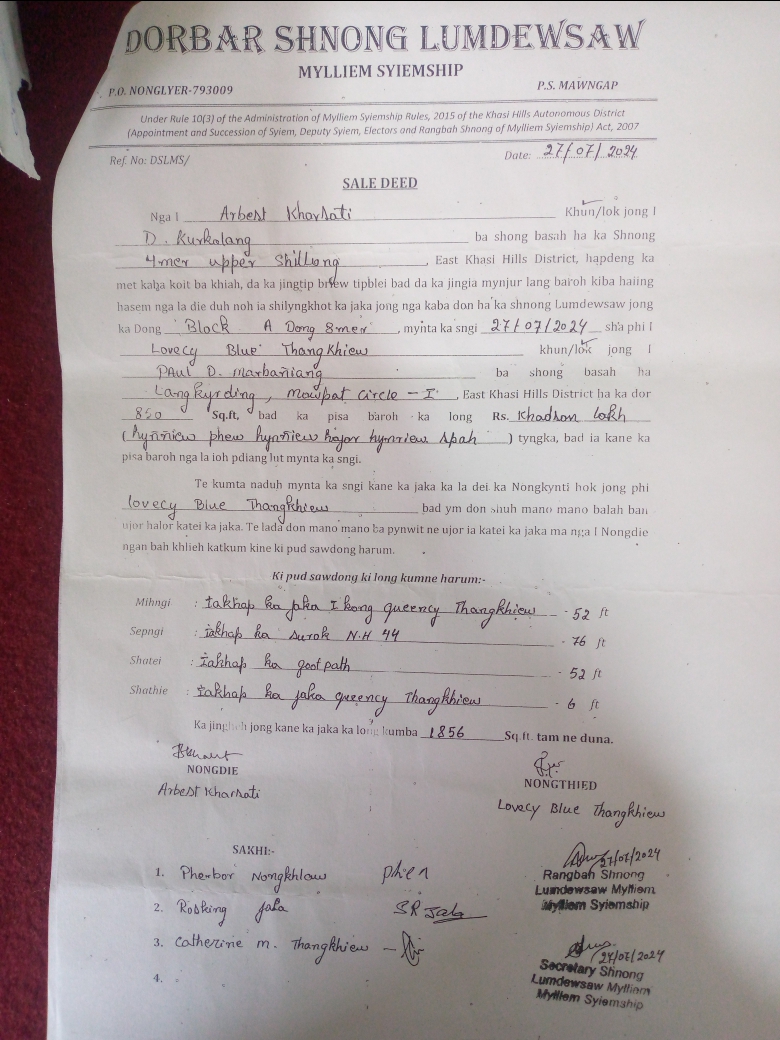 DORBAR SHNONG LUMDEWSAW
MYLLIEM SYIEMSHIP
P.O. NONGLYER-793009 P.S. MAWNGAP
Under Rule 10(3) of the Administration of Mylliem Syiemship Rules, 2015 of the Khasi Hills Autonomous District
(Appointment and Succession of Syiem, Deputy Syiem, Electors and Rangbah Shnong of Mylliem Syiemship) Act, 2007
Ref. No: DSLMS/ Date: 27/07/2024
SALE DEED
Nga I Arbest Kharsati Khun/lok jong I
D. Kurkalang ba shong basah ha ka Shnong
4mer upper Shillong, East Khasi Hills District, hapdeng ka
met kaba koit ba khiah, da ka jingtip briew tipblei bad da ka jingia mynjur lang baroh kiba haiing
hasem nga la die duh noh ia shilyngkhot ka jaka jong nga kaba don ha ka shnong Lumdewsaw jong
ka Dong Block A Dong 8mer, mynta ka sngi 27/07/2024 sha phi I
Lovecy Blue Thangkhiew khun/lok jong I
PAul D. Marbaniang ba shong basah ha
Langkyrding, Mawpat Circle - I, East Khasi Hills District ha ka dor
850 Sq.ft, bad ka pisa baroh ka long Rs. Khadson lakh
(hynñiew phew hynñiew hajar hynriew Spah) tyngka, bad ia kane ka
pisa baroh nga la ioh pdiang lut mynta ka sngi.
Te kumta naduh mynta ka sngi kane ka jaka ka la dei ka Nongkynti hok jong phi
lovecy Blue Thangkhiew bad ym don shuh mano mano balah ban
ujor halor katei ka jaka. Te lada don mano mano ba pynwit ne ujor ia katei ka jaka ma nga I Nongdie
ngan bah khlieh katkum kine ki pud sawdong harum.
Ki pud sawdong ki long kumne harum:-
Mihngi : ïakhap ka jaka I kong queency Thangkhiew - 52 ft
Sepngi : ïakhap ka surok N.H 44 - 76 ft
Shatei : ïakhap ka footpath - 52 ft
Shathie : ïakhap ka jaka queency Thangkhiew - 6 ft
jong kane ka jaka ka long kumba 1856 Sq.ft. tam ne duna.
NONGDIE NONGTHIED
Arbest Kharsati Lovecy Blue Thangkhiew
SAKHI:-
1. Pherbor Nongkhlaw phen
2. Robking jala S R Jala
3. Catherine M. Thangkhiew
4.
27/07/2024
Rangbah Shnong
Lumdewsaw Mylliem
Mylliem Syiemship
27/07/2024
Secretary Shnong
Lumdewsaw Mylliem
Mylliem Syiemship